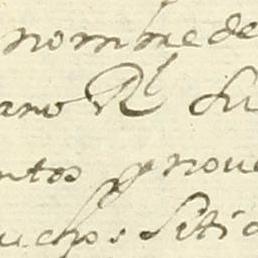 nombre de
ano Rl su
ntos y nove
uchos sitio